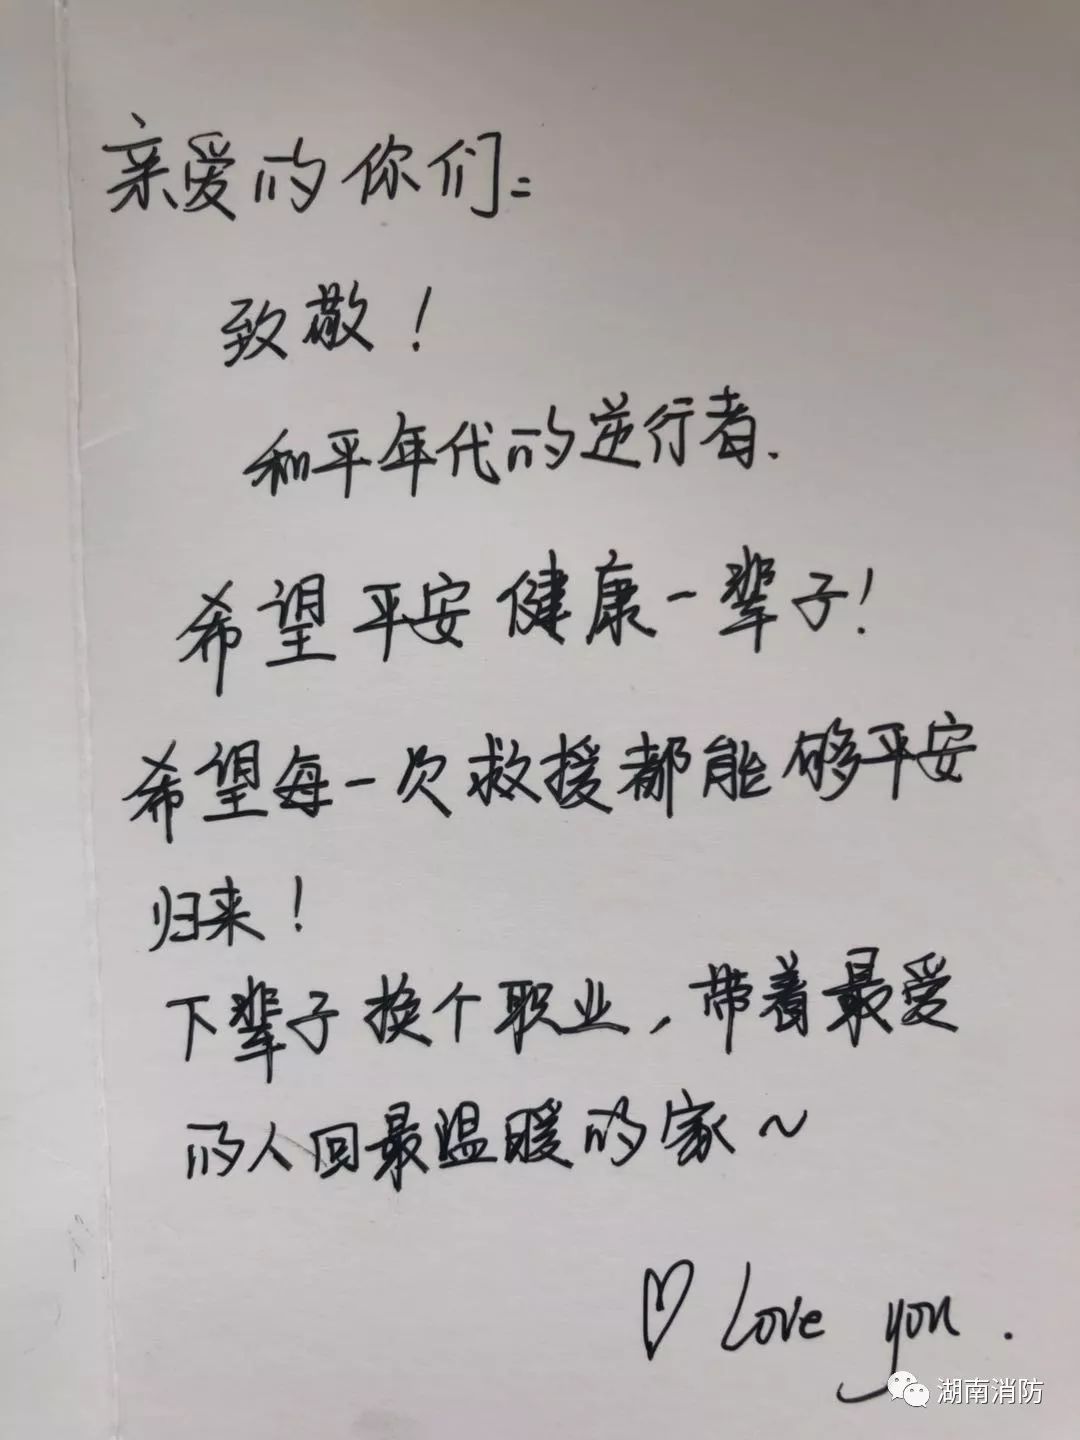 亲爱的你们:
致敬!
和平年代的逆行者.
希望平安健康一辈子!
希望每一次救援都能够平安
归来!
下辈子换个职业,带着最爱
的人回最温暖的家~
♡ Love you.
湖南消防